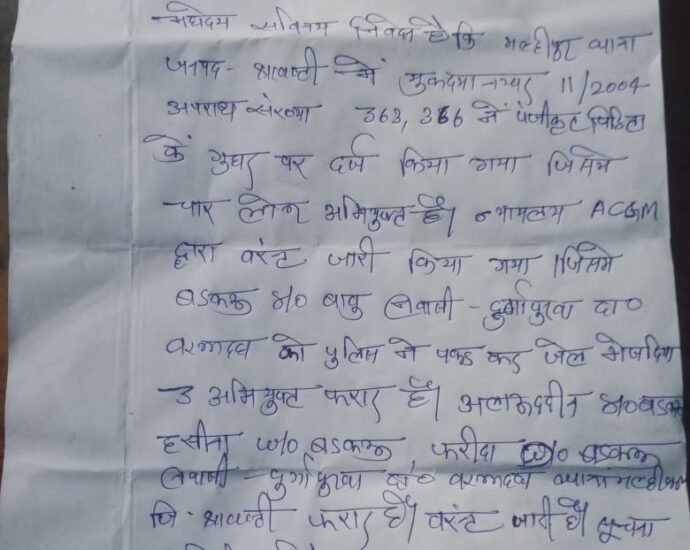 महोदय सविनय निवेदन है कि मल्हीपुर थाना
जनपद - श्रावस्ती में मुकदमा नम्बर 11/2004
अपराध संख्या 363, 366 में पंजीकृत पिडिता
के गुहार पर दर्ज किया गया जिसमे
चार लोग अभियुक्त है। न्यायलय ACJM
द्वारा वरंट जारी किया गया । जिसमे
बडकऊ S/O बाबु निवासी - दुर्गापुरवा दा०
को पुलिस ने पकड कर जेल भेज दिया
3 अभियुक्त फरार है। अलाऊद्दीन S/O बडकऊ
हसीना W/O बडकऊ, फरीदा W/O बडकऊ
निवासी - दुर्गापुरवा दा० थाना मल्हीपुर
जि० श्रावस्ती फरार है। वरंट जारी है। सूचना